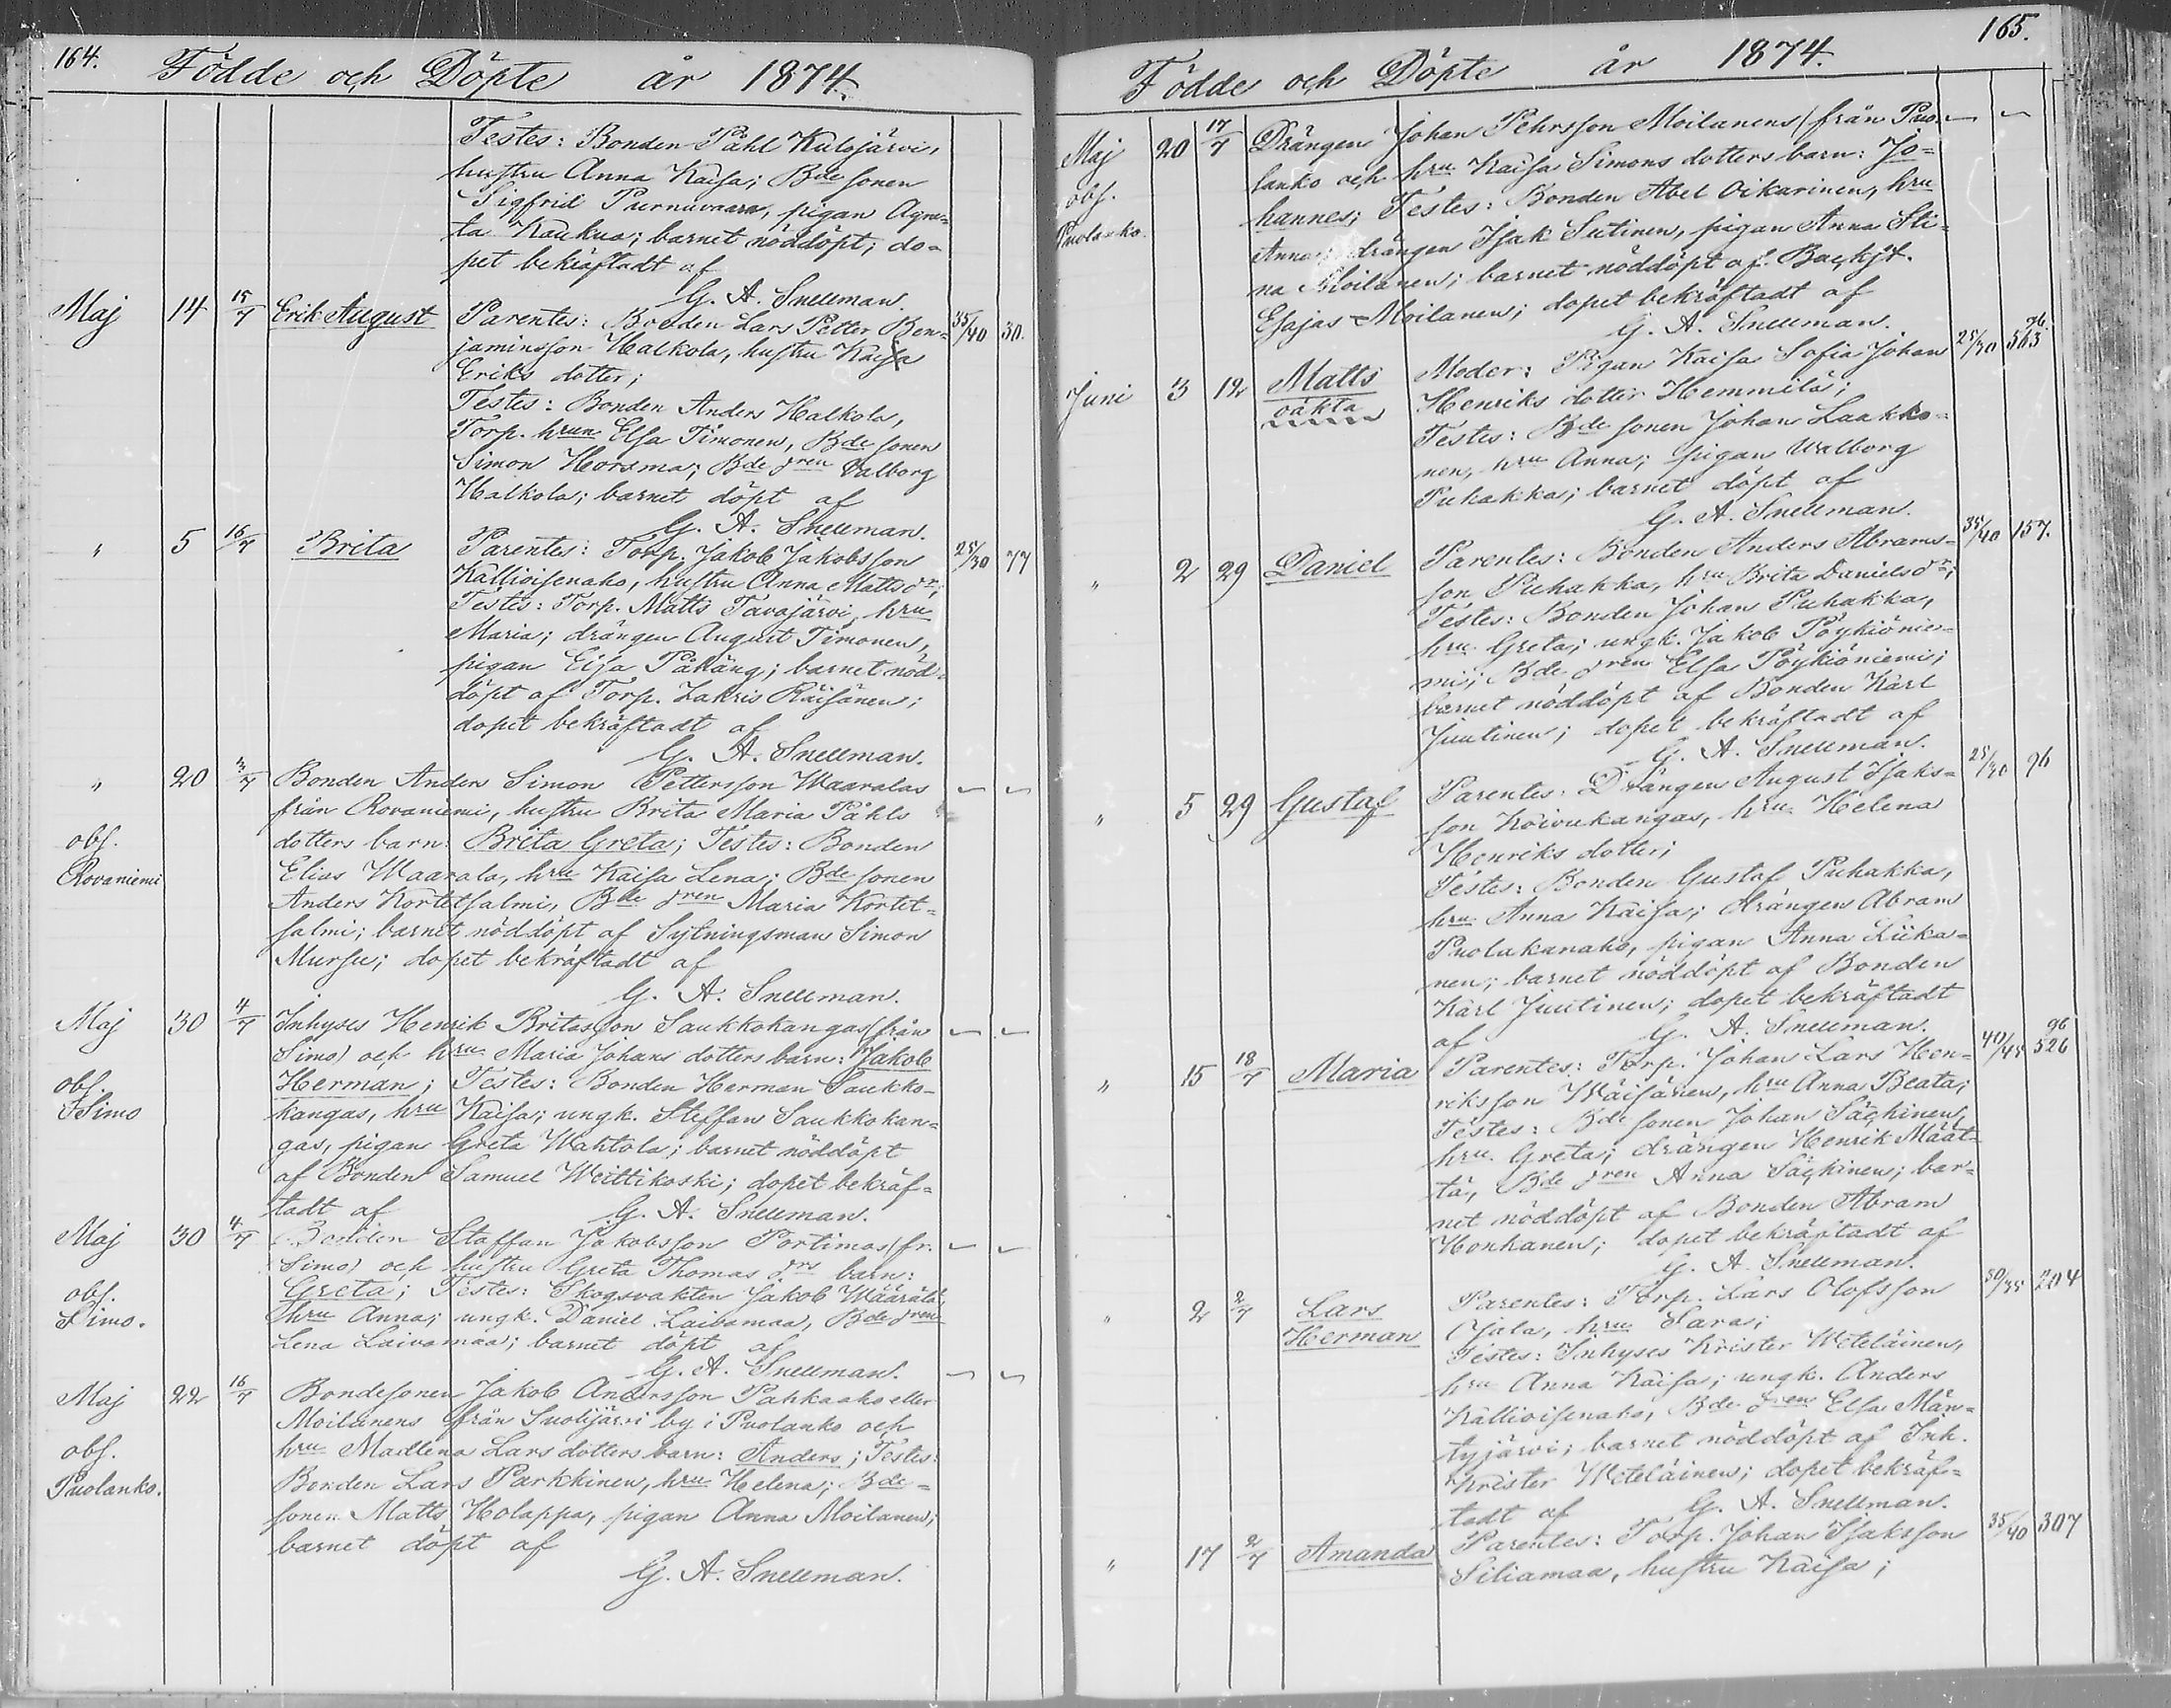 164.
Födde och Döpte år 1874.
Testes: Bonden Påhl Kulojärvi,
hustru Anna Kaisa; Bde sonen
Sigfrid Purnuvaara, pigan Agne-
ta Kaukua; barnet nöddöpt; do-
pet bekräftadt af
G. A. Snellman.
Maj 14 15/7 Erik August Parentes: Bonden Lars Petter Ben- 35/40 30.
jaminsson Halkola, hustru Kaisa
Eriks dotter;
Testes: Bonden Anders Halkola,
Torp. hrun Elsa Timonen, Bde sonen
Simon Horsma; Bde dren Valborg
Halkola; barnet döpt af
G. A. Snellman.
" 5 16/7 Brita Parentes: Torp. Jakob Jakobsson 25/30 77
Kallioisenaho, hustru Anna Matts dr;
Testes: Torp. Matts Tavajärvi, hru
Maria; drängen August Timonen,
pigan Eija Påkäng; barnet nöd-
döpt af Torp. Zakris Räisänen;
dopet bekräftadt af
G. A. Snellman.
" 20 3/7 Bonden Anders Simon Pettersson Waaralas
från Rovaniemi, hustru Brita Maria Påhls
obs. dotters barn: Brita Greta; Testes: Bonden
Rovaniemi Elias Waarala, hru Kaisa Lena; Bde sonen
Anders Kortetsalmi, Bde dren Maria Kortet-
salmi; barnet nöddöpt af Sytningsman Simon
Mursu; dopet bekräftadt af
G. A. Snellman.
Maj 30 4/7 Inhyses Henrik Britasson Saukkokangas (från
Simo) och hru Maria Johans dotters barn: Jakob
obs. Herman; Testes: Bonden Herman Saukko-
Simo kangas, hru Kaisa; ungk. Steffan Saukkokan-
gas, pigan Greta Wahtola; barnet nöddöpt
af Bonden Samuel Weittikoski; dopet bekräf-
tadt af G. A. Snellman.
Maj 30 4/7 Bonden Staffan Jakobsson Portimos (fr.
Simo) och hustru Greta Thomas drs barn:
obs. Greta; Testes: Skogsvakten Jakob Määrälä,
Simo. hru Anna; ungk. Daniel Laivamaa, Bde dren
Lena Laivamaa; barnet döpt af
G. A. Snellman.
Maj 22 16/7 Bondesonen Jakob Andersson Pahkaaho eller
Moilanens från Suolijärvi by i Puolanko och
obs. hru Madlena Lars dotters barn: Anders; Testes:
Puolanko. Bonden Lars Parkkinen, hru Helena; Bde-
sonen Matts Holappa, pigan Anna Moilanen;
barnet döpt af
G. A. Snellman.
165.
Födde och Döpte år 1874.
Maj 20 17/7 Drängen Johan Pehrsson Moilanens (från Puo-
obs. lanko och hru Kaisa Simons dotters barn: Jo-
Puolanko. hannes; Testes: Bonden Abel Oikarinen, hru
Anna; drängen Isak Sutinen, pigan Anna Sti-
na Moilanen; barnet nöddöpt af Backst.
Esajas Moilanen; dopet bekräftadt af
G. A. Snellman.
Juni 3 12 Matts Moder: Pigan Kaisa Sofia Johan 25/30 96. 563
oäkta Henriks dotter Hemmilä;
Testes: Bde sonen Johan Laakko-
nen, hru Anna; pigan Walborg
Puhakka; barnet döpt af
G. A. Snellman.
" 2 29 Daniel Parentes: Bonden Anders Abrams- 35/40 157.
son Puhakka, hru Brita Daniels dr;
Testes: Bonden Johan Puhakka,
hru Greta; ungk. Jakob Pöykiönie-
mi; Bde dren Elsa Pöykiöniemi;
barnet nöddöpt af Bonden Karl
Juutinen; dopet bekräftadt af
G. A. Snellman.
" 5 29 Gustaf Parentes: Drängen August Isaks- 25/30 96
son Koivukangas, hru Helena
Henriks dotter;
Testes: Bonden Gustaf Puhakka,
hru Anna Kaisa; drängen Abram
Puolakanaho, pigan Anna Liika-
nen; barnet nöddöpt af Bonden
Karl Juutinen; dopet bekräftadt
af G. A. Snellman.
" 15 18/7 Maria Parentes: Torp. Johan Lars Hen- 40/45 96 526
riksson Wäisänen, hru Anna Beata;
Testes: Bde sonen Johan Säckinen,
hru Greta; drängen Henrik Määt-
tä, Bde dren Anna Säckinen; bar-
net nöddöpt af Bonden Abram
Honkanen; dopet bekräftadt af
G. A. Snellman.
" 2 2/7 Lars Parentes: Torp. Lars Olofsson 30/35 204
Herman Ojala, hru Sara;
Testes: Inhyses Krister Weteläinen,
hru Anna Kaisa; ungk. Anders
Kallioisenaho, Bde dren Elsa Män-
tyjärvi; barnet nöddöpt af Inh.
Krister Weteläinen; dopet bekräf-
tadt af G. A. Snellman.
" 17 2/7 Amanda Parentes: Torp. Johan Isaksson 35/40 307
Siliamaa, hustru Kaisa;